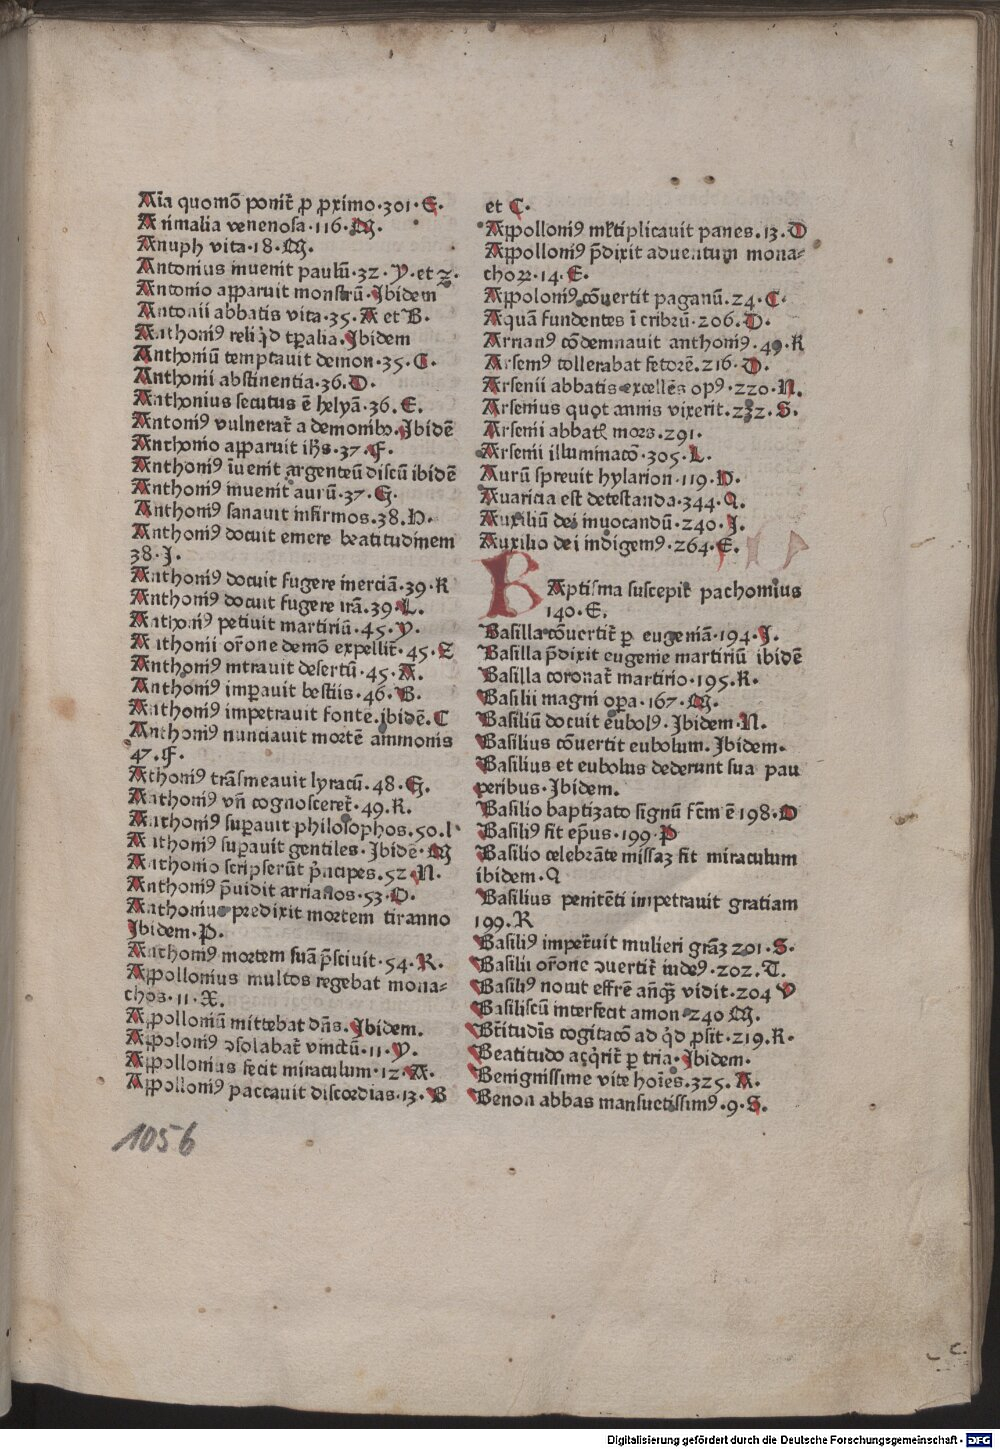 Aĩa quomõ ponit̃ ꝓ ꝓximo·301·E·
Animalia venenosa·116·M·
Anuph vita·18·M·
Antonius inuenit paulũ·32·Y·et ꝛ·
Antonio apparuit monstrũ·Jbidem
Antonii abbatis vita·35·A et B·
Anthoniꝰ reliq̃d tꝑalia·Jbidem
Anthoniũ temptauit demon·35·C·
Anthonii abstinentia·36·D·
Anthonius secutus ẽ helyã·36·E·
Antoniꝰ vulnerat̃ a demonibꝰ·Jbidẽ
Anthonio apparuit ih̃s·37·F·
Anthoniꝰ ĩuenit argenteũ discũ ibidẽ
Anthoniꝰ inuenit aurũ·37·G·
Anthoniꝰ sanauit infirmos·38·H·
Anthoniꝰ docuit emere beatitudinem
38·J·
Anthoniꝰ docuit fugere inerciã·39·K
Anthoniꝰ docuit fugere irã·39·L·
Anthoniꝰ petiuit martiriũ·45·Y·
Anthonii or̃one demõ expellit̃·45·Z
Anthoniꝰ intrauit desertũ·45·A·
Anthoniꝰ imꝑauit bestiis·46·B·
Anthoniꝰ impetrauit fontẽ·ibidẽ·C
Anthoniꝰ nunciauit mortẽ ammonis
47·F·
Athoniꝰ trãsmeauit lyracũ·48·G·
Anthoniꝰ vñ cognosceret̃·49·K·
Anthoniꝰ suꝑauit philosophos·50·l
Anthoniꝰ suꝑauit gentiles·Jbidẽ·M
Anthonio scripserũt p̃ncipes·52·N·
Anthoniꝰ p̃uidit arrianos·53·O·
Anthonius predixit mortem tiranno
Jbidem·P·
Anthoniꝰ mortem suã p̃sciuit·54·R·
Appollonius multos regebat mona-
chos·11·X·
Appolloniũ mittebat dñs·Jbidem·
Appoloniꝰ ↄsolabat̃ vinctũ·11·Y·
Appollonius fecit miraculum·12·A·
Appolloniꝰ paccauit discordias·13·B
et C·
Appolloniꝰ mĩtiplicauit panes·13·D
Appolloniꝰ p̃dixit aduentum mona-
choꝝ·14·E·
Appoloniꝰ cõuertit paganũ·24·C·
Aquã fundentes ĩ cribrũ·206·D·
Arrianꝰ cõdemnauit anthoniꝰ·49·K
Arseniꝰ tollerabat fetorẽ·216·D·
Arsenii abbatis excellẽs opꝰ·220·N·
Arsenius quot annis vixerit·232·S·
Arsenii abbatꝭ mors·291·
Arsenii illuminacõ·305·L·
Aurũ spreuit hylarion·119·D·
Auaricia est detestanda·344·Q·
Auxiliũ dei inuocandũ·240·J·
Auxilio dei indigemꝰ·264·E·
BAptisma suscepit pachomius
140·E·
Basilla cõuertit̃ ꝑ eugeniã·194·J·
Basilla p̃dixit eugenie martiriũ ibidẽ
Basilla coronat̃ martirio·195·K·
Basilii magni oꝑa·167·M·
Basiliũ docuit eubolꝰ·Jbidem·N·
Basilius cõuertit eubolum·Jbidem·
Basilius et eubolus dederunt sua pau
peribus·Jbidem·
Basilio baptizato signũ fc̃m ẽ 198·O
Basiliꝰ fit ep̃us·199·P
Basilio celebrãte missaꝫ fit miraculum
ibidem·Q
Basilius penitẽti impetrauit gratiam
199·R
Basiliꝰ impet̃uit mulieri grãꝫ 201·S·
Basilii or̃one ↄuertit̃ iudeꝰ·202·T·
Basiliꝰ nouit effrẽ añqꝫ̃ vidit·204 V
Basiliscũ interfecit amon·240 M·
Bt̃itudĩs cogitacõ ad q̃d ꝓsit·219·R·
Beatitudo aq̃rit̃ ꝑ tria·Jbidem·
Benignissime vite hoĩes·325·A·
Benon abbas mansuetissimꝰ·9·S·
1056
c.
Digitalisierung gefördert durch die Deutsche Forschungsgemeinschaft - DFG